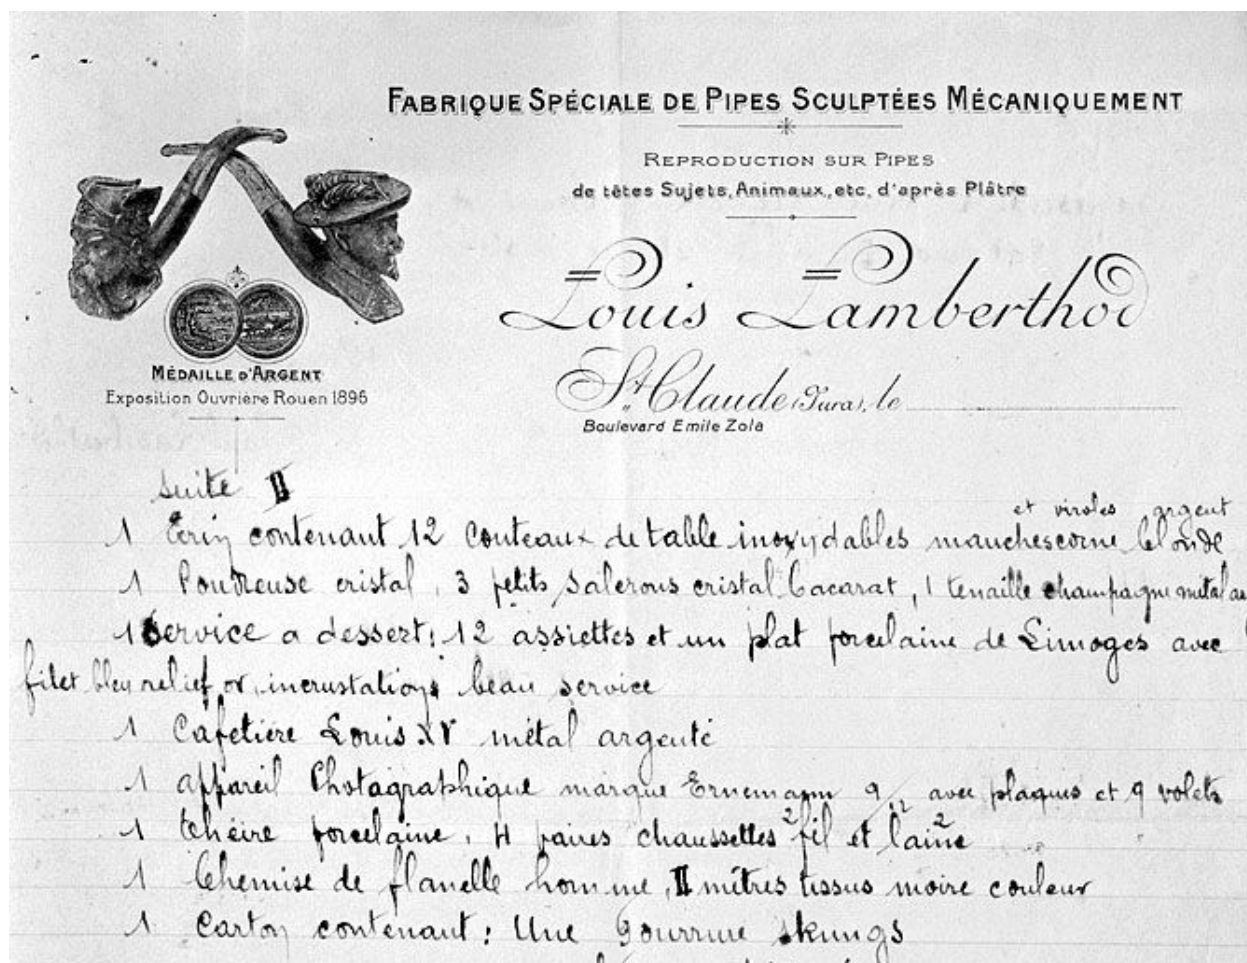 FABRIQUE SPÉCIALE DE PIPES SCULPTÉES MÉCANIQUEMENT
REPRODUCTION SUR PIPES
de têtes Sujets, Animaux, etc, d'après Plâtre
Louis Lamberthod
St Claude (Jura), le
Boulevard Emile Zola
MÉDAILLE D'ARGENT
Exposition Ouvrière Rouen 1896
suite II
et viroles argent
1 Ecrin contenant 12 couteaux de table inoxydables manches corne blonde
1 Poudreuse cristal, 3 petits salerons cristal bacarat, 1 tenaille champagne métal
1 Service a dessert: 12 assiettes et un plat porcelaine de Limoges avec
filet bleu relief or, incrustations beau service
1 Cafetière Louis XV métal argenté
1 appareil Photagraphique marque Ernemann 9/12 avec plaques et 9 volets
1 théire porcelaine, 4 paires chaussettes 2 fil et 2 laine
1 Chemise de flanelle homme, II mètres tissus moire couleur
1 Carton contenant: Une skungs